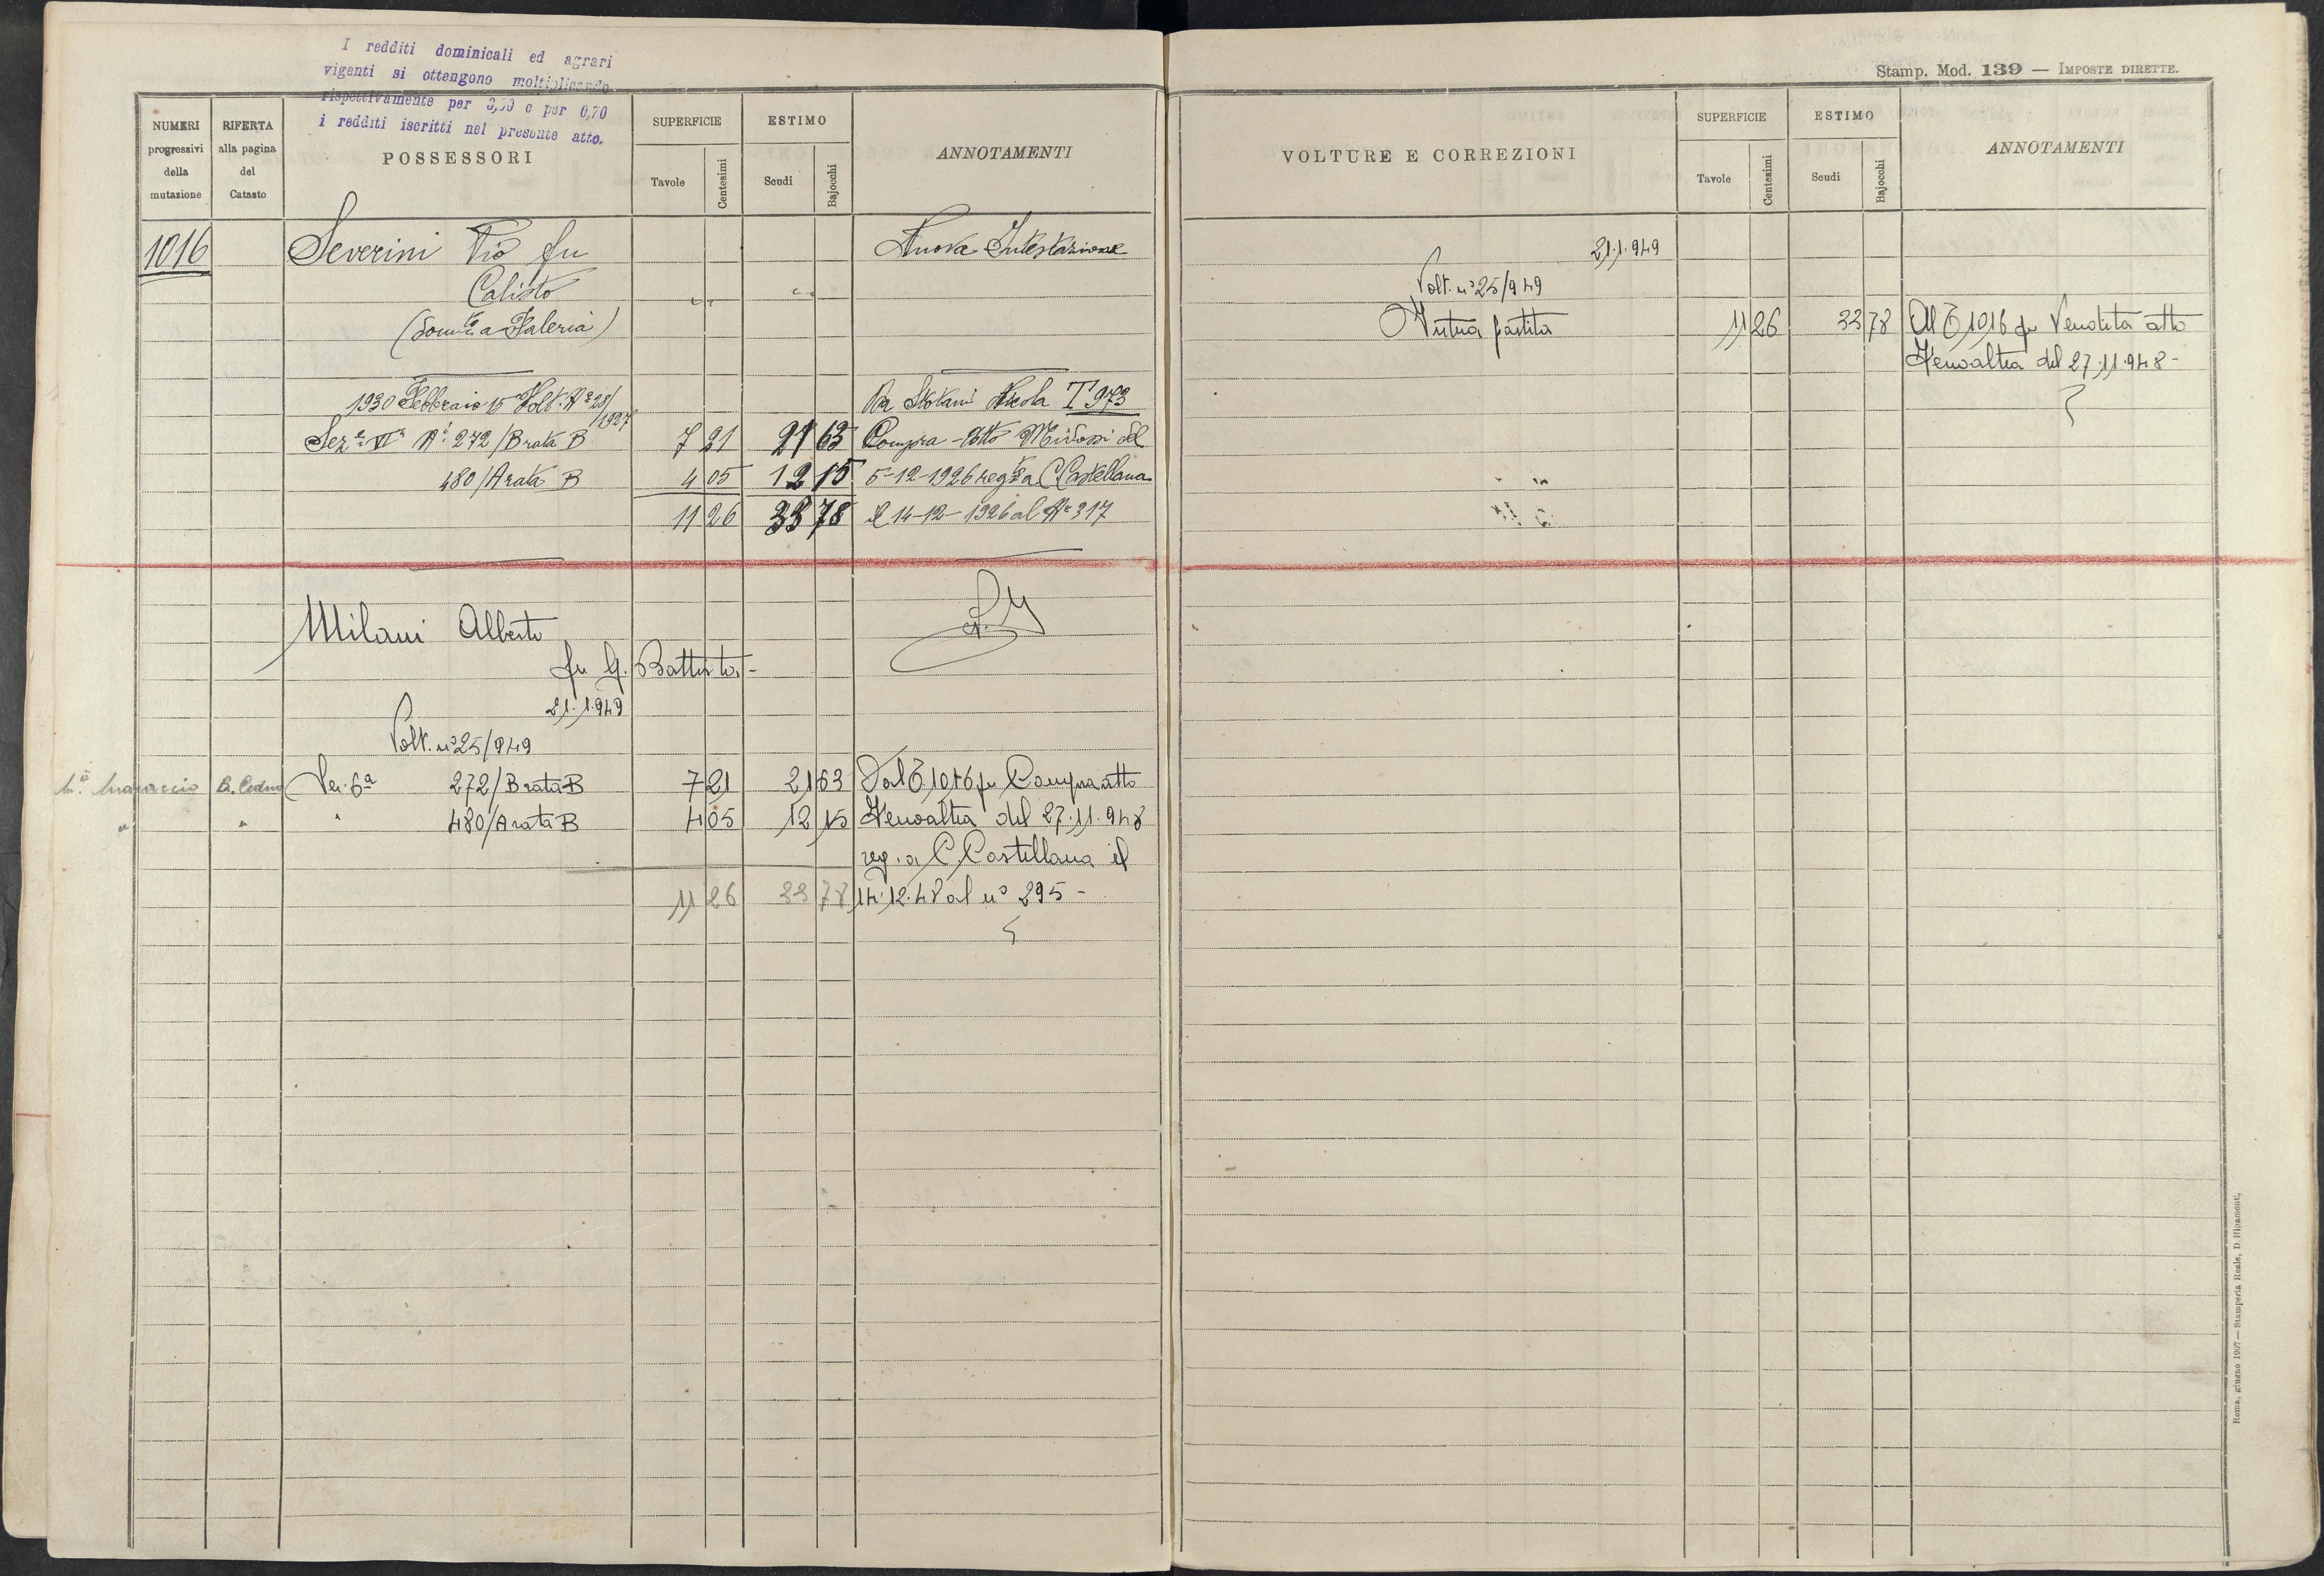 I redditi dominicali ed agrari
vigenti si ottengono moltiplicando
rispettivamente per 3,50 e per 0,70
i redditi iscritti nel presente atto.
Stamp. Mod. 139 — IMPOSTE DIRETTE.
NUMERI progressivi della mutazione
RIFERTA alla pagina del Catasto
POSSESSORI
SUPERFICIE
Tavole
Centesimi
ESTIMO
Scudi
Bajocchi
ANNOTAMENTI
1016 Severini Pio fu Nuova Intestazione
Calisto
(Dom.to a Faleria)
1930 Febbraio 15 Volt. N° 28/1927 Da Nicola T 973
Sez.e VIa N.i 272/Brata B 7 21 21 63 Compra - Atto del
480/Arata B 4 05 12 15 5-12-1926 reg.to a C. Castellana
11 26 33 78 il 14-12-1926 al N° 317
Milani Alberto
fu G. Battista -
21.1.949
Volt. n° 25/949
B. Ceduo Sez. 6a 272/BrataB 7 21 21 63 Dal T 1016 fu Compra atto
" " " 480/ArataB 4 05 12 15 del 27.11.948
reg. a C. Castellana il
11 26 33 78 14.12.48 al n° 295 -
VOLTURE E CORREZIONI
SUPERFICIE
Tavole
Centesimi
ESTIMO
Scudi
Bajocchi
ANNOTAMENTI
21.1.949
Volt. n° 25/949
Intera partita 11 26 33 78 Al T 1016 fu Vendita atto
del 27.11.948 -
Roma, giugno 1907 — Stamperia Reale, D. Ripamonti.